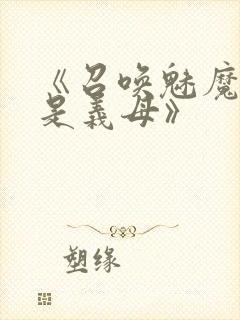 《召唤魅魔
是義母》
塑缘